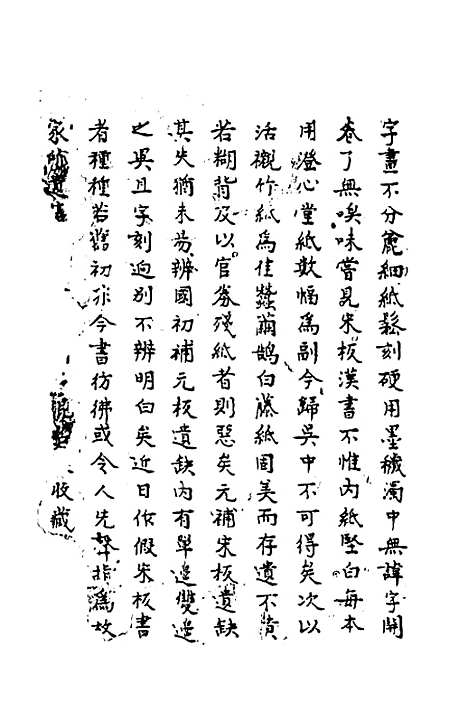 字畫不分麄細紙鬆刻硬用墨穢濁中無諱字開
卷了無嗅味嘗見宋板漢書不惟內紙堅白每本
用澄心堂紙數幅為副今歸吳中不可得矣次以
活襯竹紙為佳蠶繭鵠白藤紙固美而存遺不廣
若糊背及以官券殘紙者則惡矣元補宋板遺缺
其失猶未易辨國初補元板遺缺內有單邊雙邊
之異且字刻迥別不辨明白矣近日作假宋板書
者種種若舊初非今書彷彿或令人先聲指為故
家
收藏